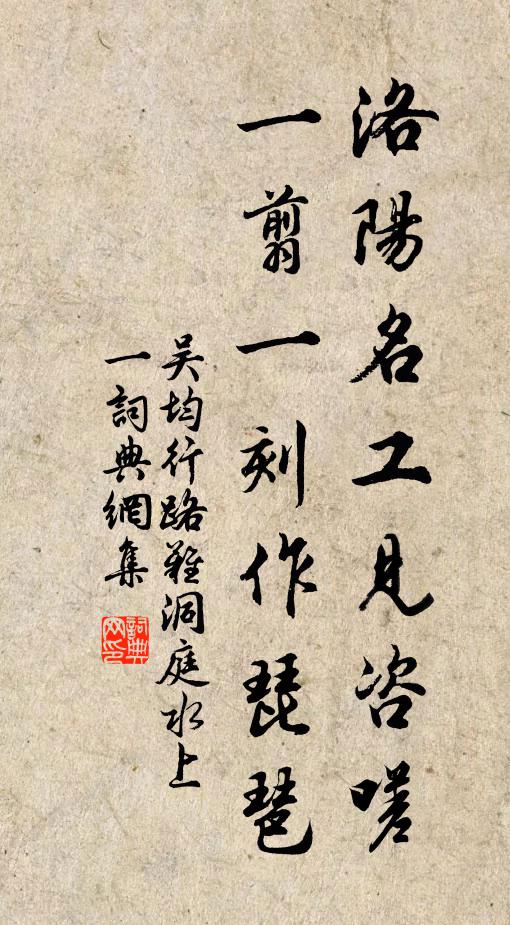 洛陽名工見咨嗟
一剪一刻作琵琶
吴均行路難洞庭水上
一詞典網集
詞典
网印